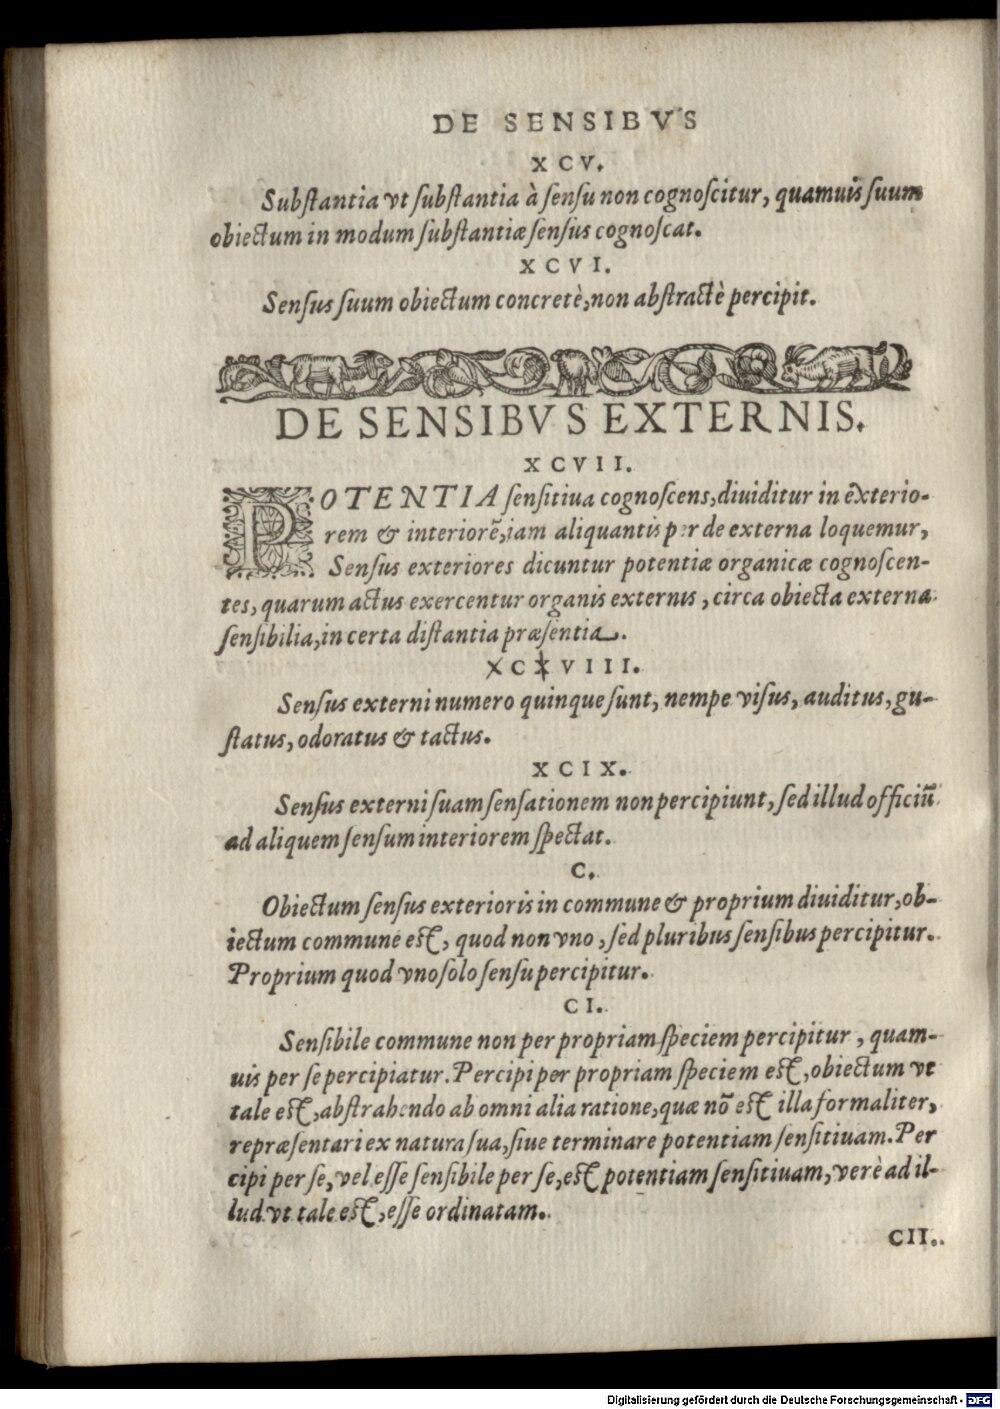 DE SENSIBVS
XCV.
Substantia vt substantia à sensu non cognoscitur, quamuis suum
obiectum in modum substantiæ sensus cognoscat.
XCVI.
Sensus suum obiectum concretè, non abstractè percipit.
DE SENSIBVS EXTERNIS.
XCVII.
POTENTIA sensitiua cognoscens, diuiditur in exterio-
rem & interiorē, iam aliquantisper de externa loquemur,
Sensus exteriores dicuntur potentiæ organicæ cognoscen-
tes, quarum actus exercentur organis externis, circa obiecta externa
sensibilia, in certa distantia præsentia.
XCXVIII.
Sensus externi numero quinque sunt, nempe visus, auditus, gu-
status, odoratus & tactus.
XCIX.
Sensus externi suam sensationem non percipiunt, sed illud officiū
ad aliquem sensum interiorem spectat.
C.
Obiectum sensus exterioris in commune & proprium diuiditur, ob-
iectum commune est, quod non vno, sed pluribus sensibus percipitur.
Proprium quod vno solo sensu percipitur.
CI.
Sensibile commune non per propriam speciem percipitur, quam-
uis per se percipiatur. Percipi per propriam speciem est, obiectum vt
tale est, abstrahendo ab omni alia ratione, quæ nō est illa formaliter,
repræsentari ex natura sua, siue terminare potentiam sensitiuam. Per
cipi per se, vel esse sensibile per se, est potentiam sensitiuam, verè ad il-
lud vt tale est, esse ordinatam.
CII.
Digitalisierung gefördert durch die Deutsche Forschungsgemeinschaft - DFG